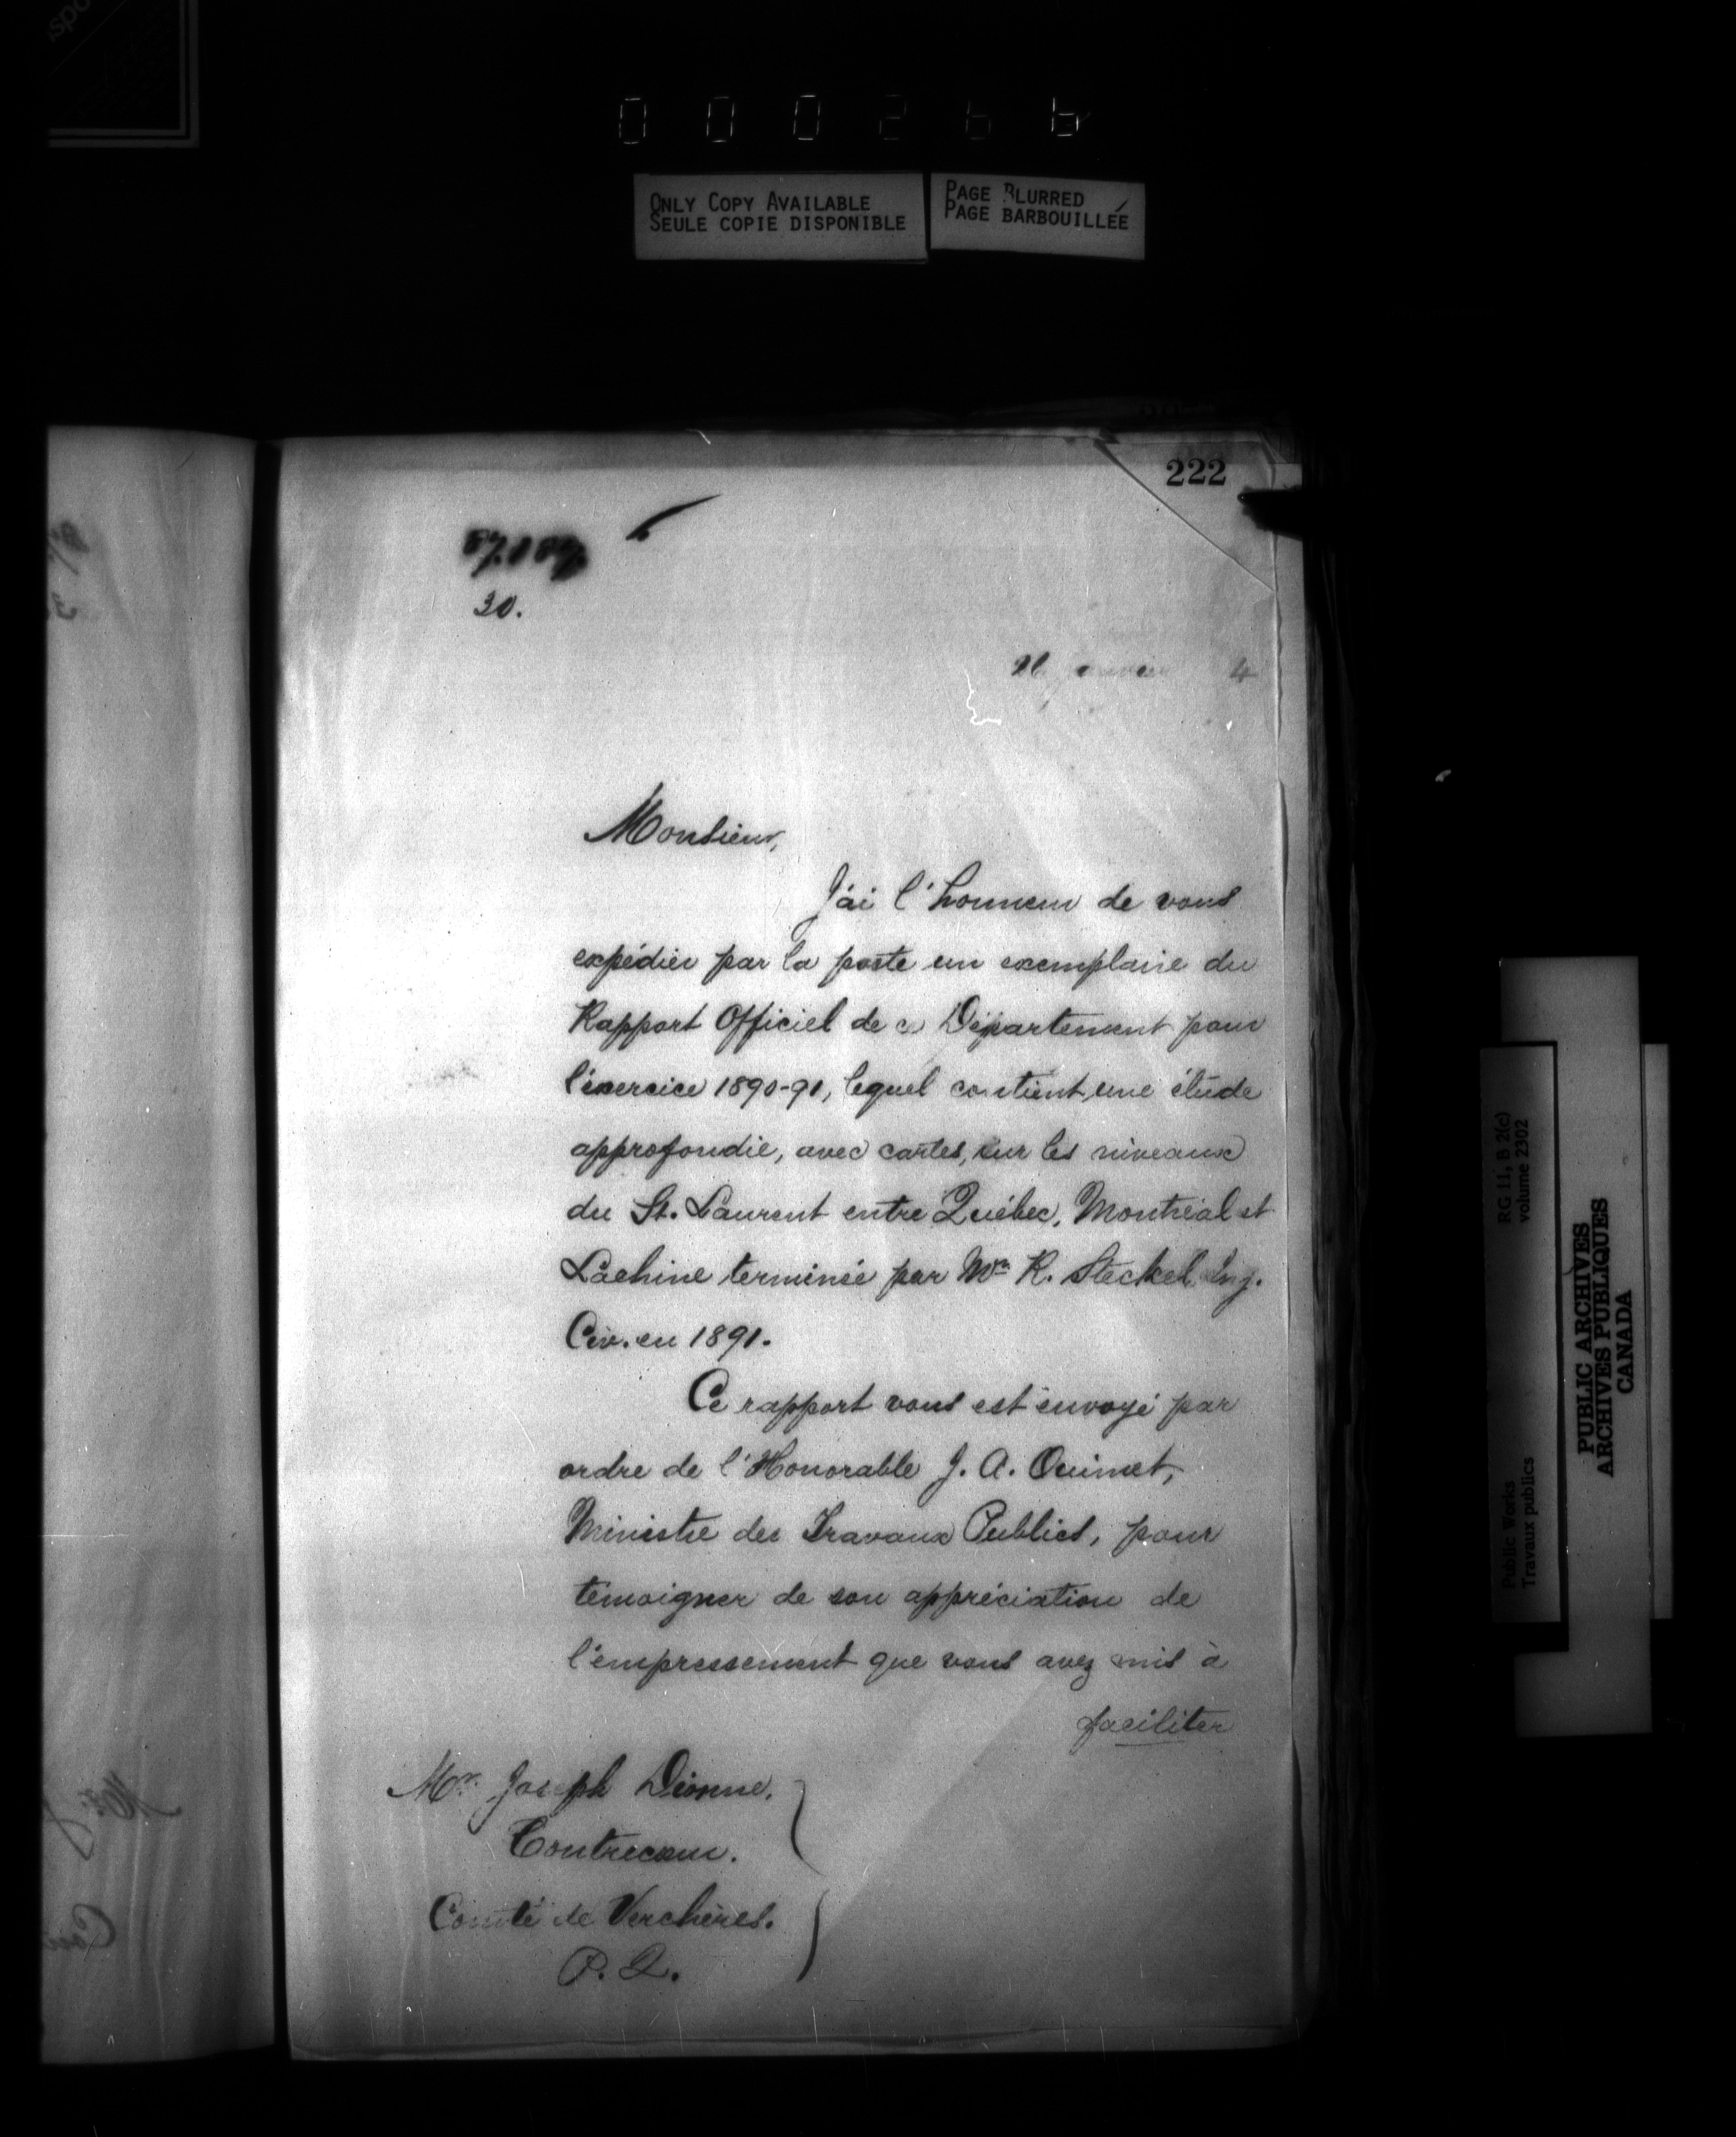 ONLY COPY AVAILABLE
SEULE COPIE DISPONIBLE
PAGE BLURRED
PAGE BARBOUILLÉE
222
30.
janvier 4
Monsieur,
J'ai l'honneur de vous
expédier par la poste un exemplaire du
Rapport Officiel de ce Département pour
l'exercice 1890-91, lequel contient une étude
approfondie, avec cartes, sur les niveaux
du St. Laurent entre Québec, Montréal et
Lachine terminée par Mr. R. Steckel Ing.
Civ. en 1891.
Ce rapport vous est envoyé par
ordre de l'Honorable J. A. Ouimet,
Ministre des Travaux Publics, pour
témoigner de son appréciation de
l'empressement que vous avez mis à
faciliter
Mr. Joseph Dionne.
Contrecoeur.
Comté de Verchères.
P. Q.
RG 11, B 2(c)
volume 2302
Public Works
Travaux publics
PUBLIC ARCHIVES
ARCHIVES PUBLIQUES
CANADA